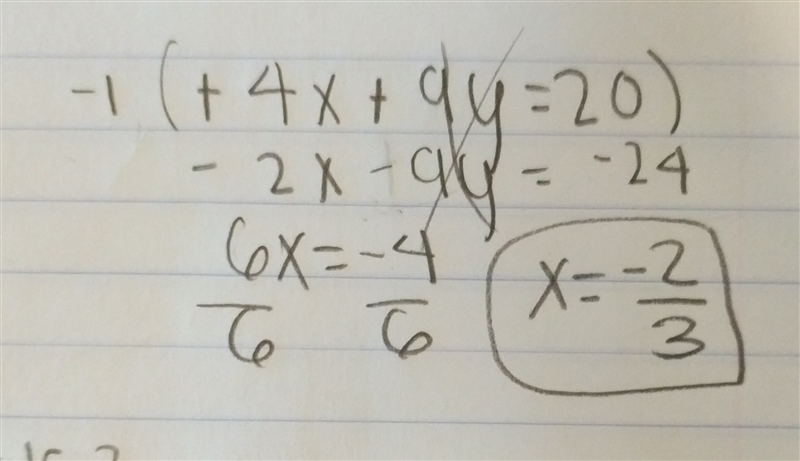 -1 (+4x + 9y = 20)
- 2x - 9y = -24
6x = -4
6 6
x = -2/3